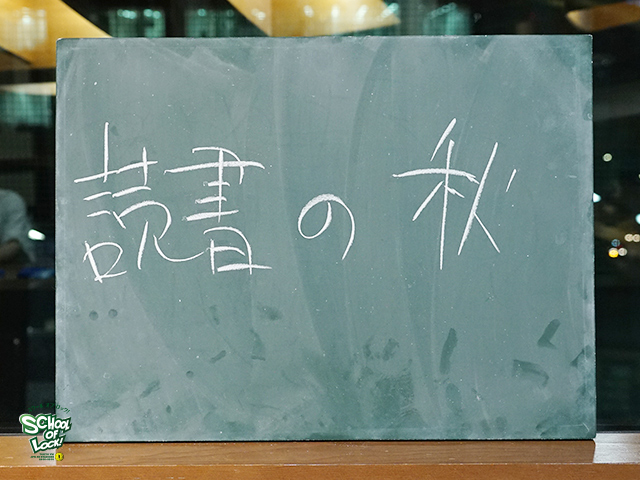 読書の秋
SCHOOL
OF
LOCK!